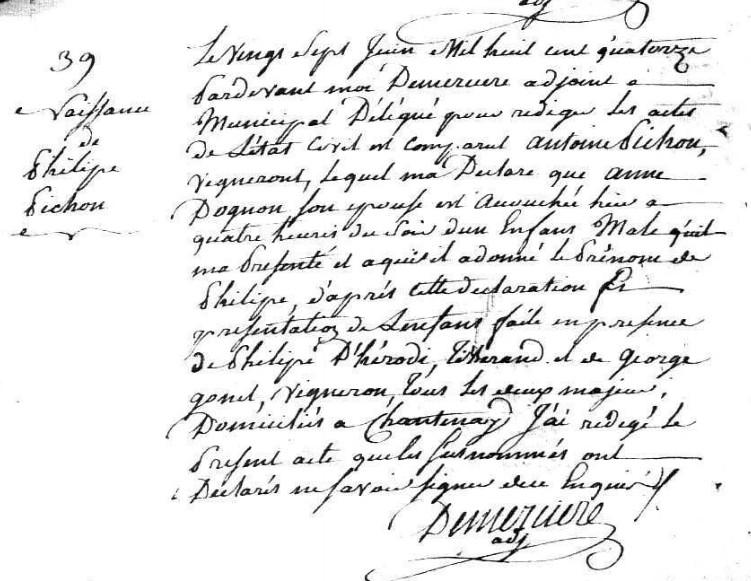 adj
39
Naissance
de
Philipe
Pichon
Le vingt Sept Juin Mil huit cent quatorze
Pardevant moi Demerciere adjoint
Municipal Délégué pour rediger les actes
de L'état Civil est comparut antoine Pichon,
vigneront, Lequel ma Declaré que anne
Dognon son epouse est accouchée hier a
quatre heures du Soir dun Enfans Male quil
ma presenté et aquil il adonné le Prénom de
Philipe, d'après cette declaration Et
presentation de Lenfans faite en presence
de Philipe D'hérode, et de George
gonet, vigneron, tous Les deux majeur,
Domicilés a Chantenay J'ai redigé le
Present acte que les susnommés ont
Declarés ne savoir signer de ce Enquis
Demerciere
adj